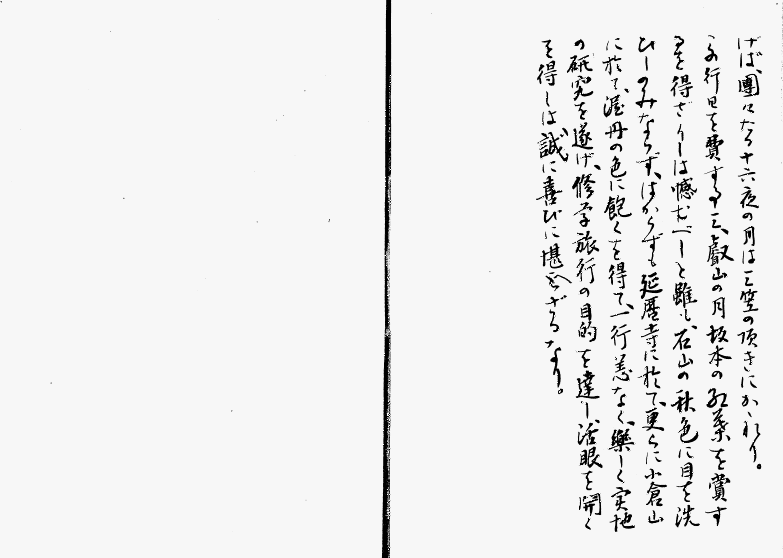 げば、團々たる十六夜の月は三笠の頂きにかゝれり。
この行日を費する三、叡山の月坂本の紅葉を賞す
るを得ざりしは憾むべしと雖も、石山の秋色に目を洗
ひしのみならず、はからずも延暦寺に於て、更らに小倉山
に於て、渥丹の色に飽くを得て、一行恙なく、樂しく実地
の研究を遂げ、修学旅行の目的を達し、活眼を開く
を得しは、誠に喜びに堪えざるなり。